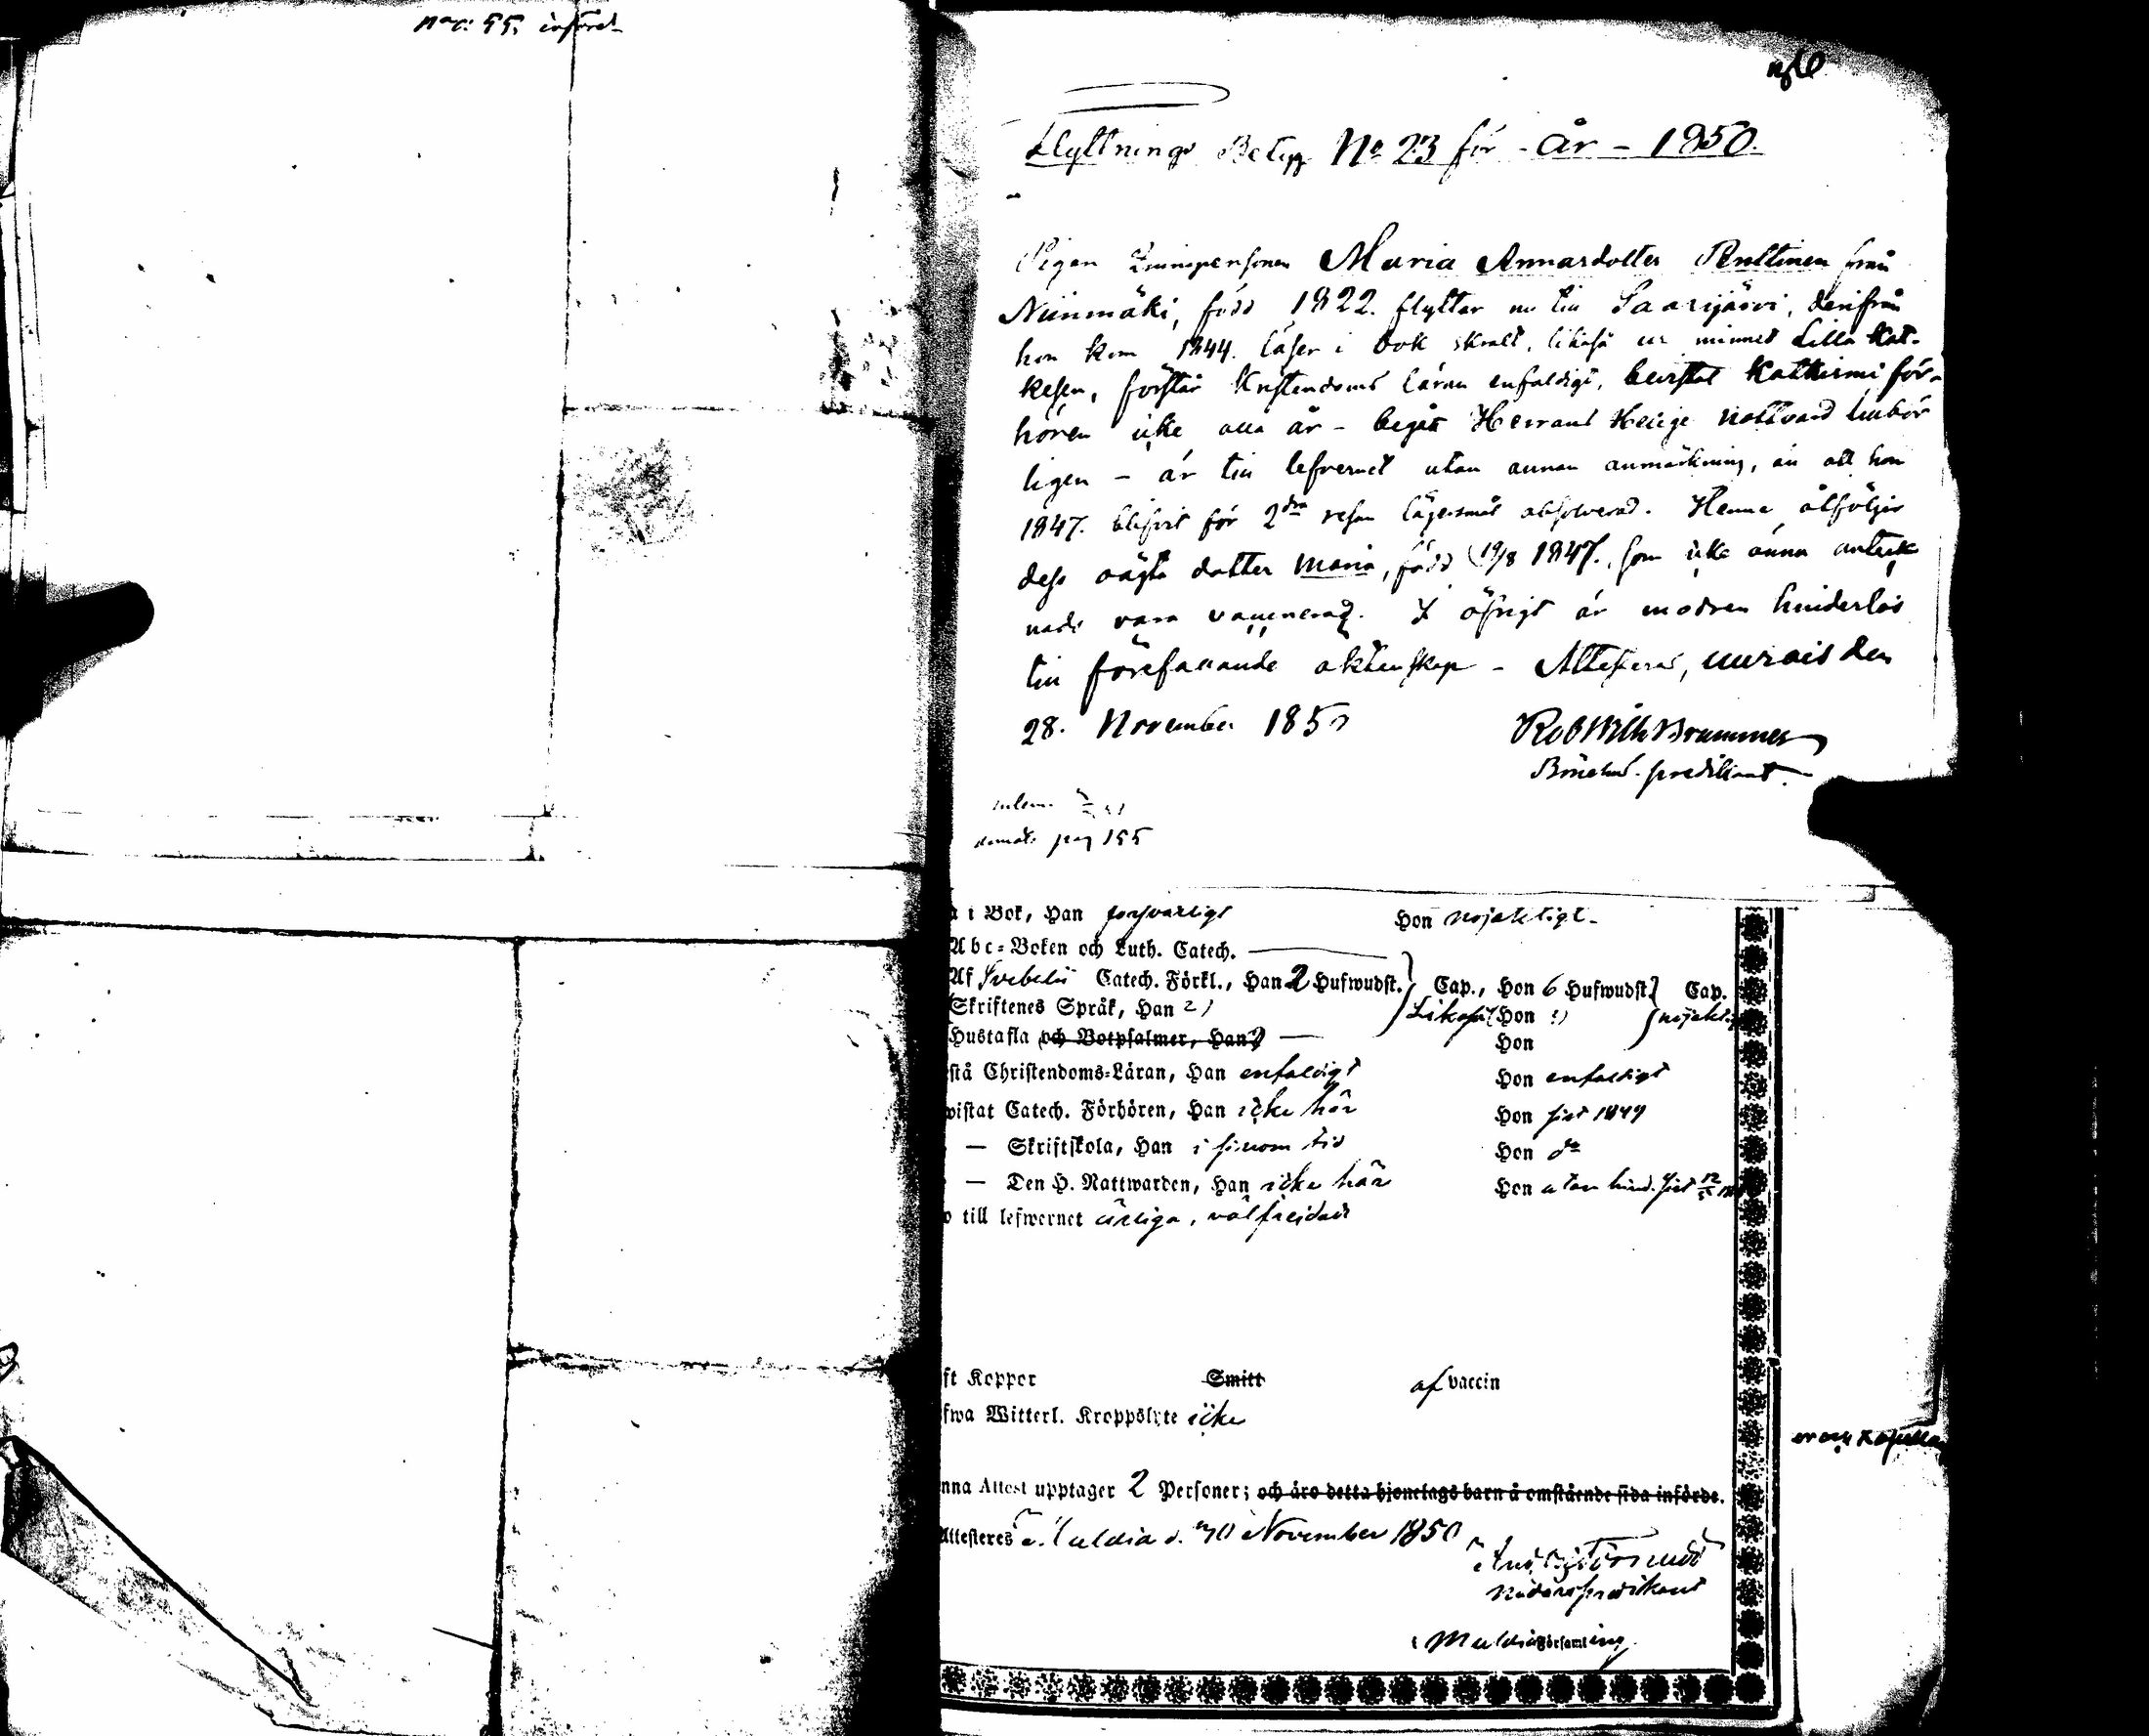 införd
Flyttnings Betyg No 23 för - år - 1850.
Pigan Qvinspersonen Maria Annasdotter Penttinen från
Niinmäki, född 1822. flyttar nu till Saarijärvi, derifrån
hon kom 1844. läser i bok skralt, likaså ur minnet Lilla Kat-
kesen, förstår Kristendoms läran enfaldigt, bevistat Katkismi för-
hören icke alla år - begått Herrans Helige nattvard tillbör
ligen - är till lefvernet utan annan anmärkning, än att hon
1847. blifvit för 2dra resan lägersmål absolverad. Henne åtföljer
dess oägta dotter Maria, född 19/8 1847. som icke ännu anteck
nads vara vaccinerad. I öfrigt är modren hinderlös
till förefallande äktenskap - Attesteras, Multia den
28. November 1850
Rob Wilh Brummer
predikant.
pag 155
i Bok, Han försvarligt Hon nöjaktigt.
Abc-Boken och Luth. Catech.
Af Svebelii Catech. Förkl., Han 2 Hufwudst. Cap., Hon 6 Hufwudst. Cap.
Skriftenes Språk, Han 2) Likaså Hon nöjakti
Hustafla och Botpsalmer, Han Hon
stå Christendoms-Läran, Han enfaldigt Hon enfaldigt
wistat Catech. Förhören, Han icke här Hon sist 1849
— Skriftskola, Han i sinom tid Hon do
— Den H. Nattwarden, Han icke här Hon utan hind. sist
till lefwernet ärliga, välfrejdade
ft Koppor Smitt af vaccin
fwa Witterl. Kroppslyte icke
nna Attest upptager 2 Personer; och äro detta hjonelags barn å omstående sida införde.
Attesteres November 1850
Nådårspredikant
i Multia Församling